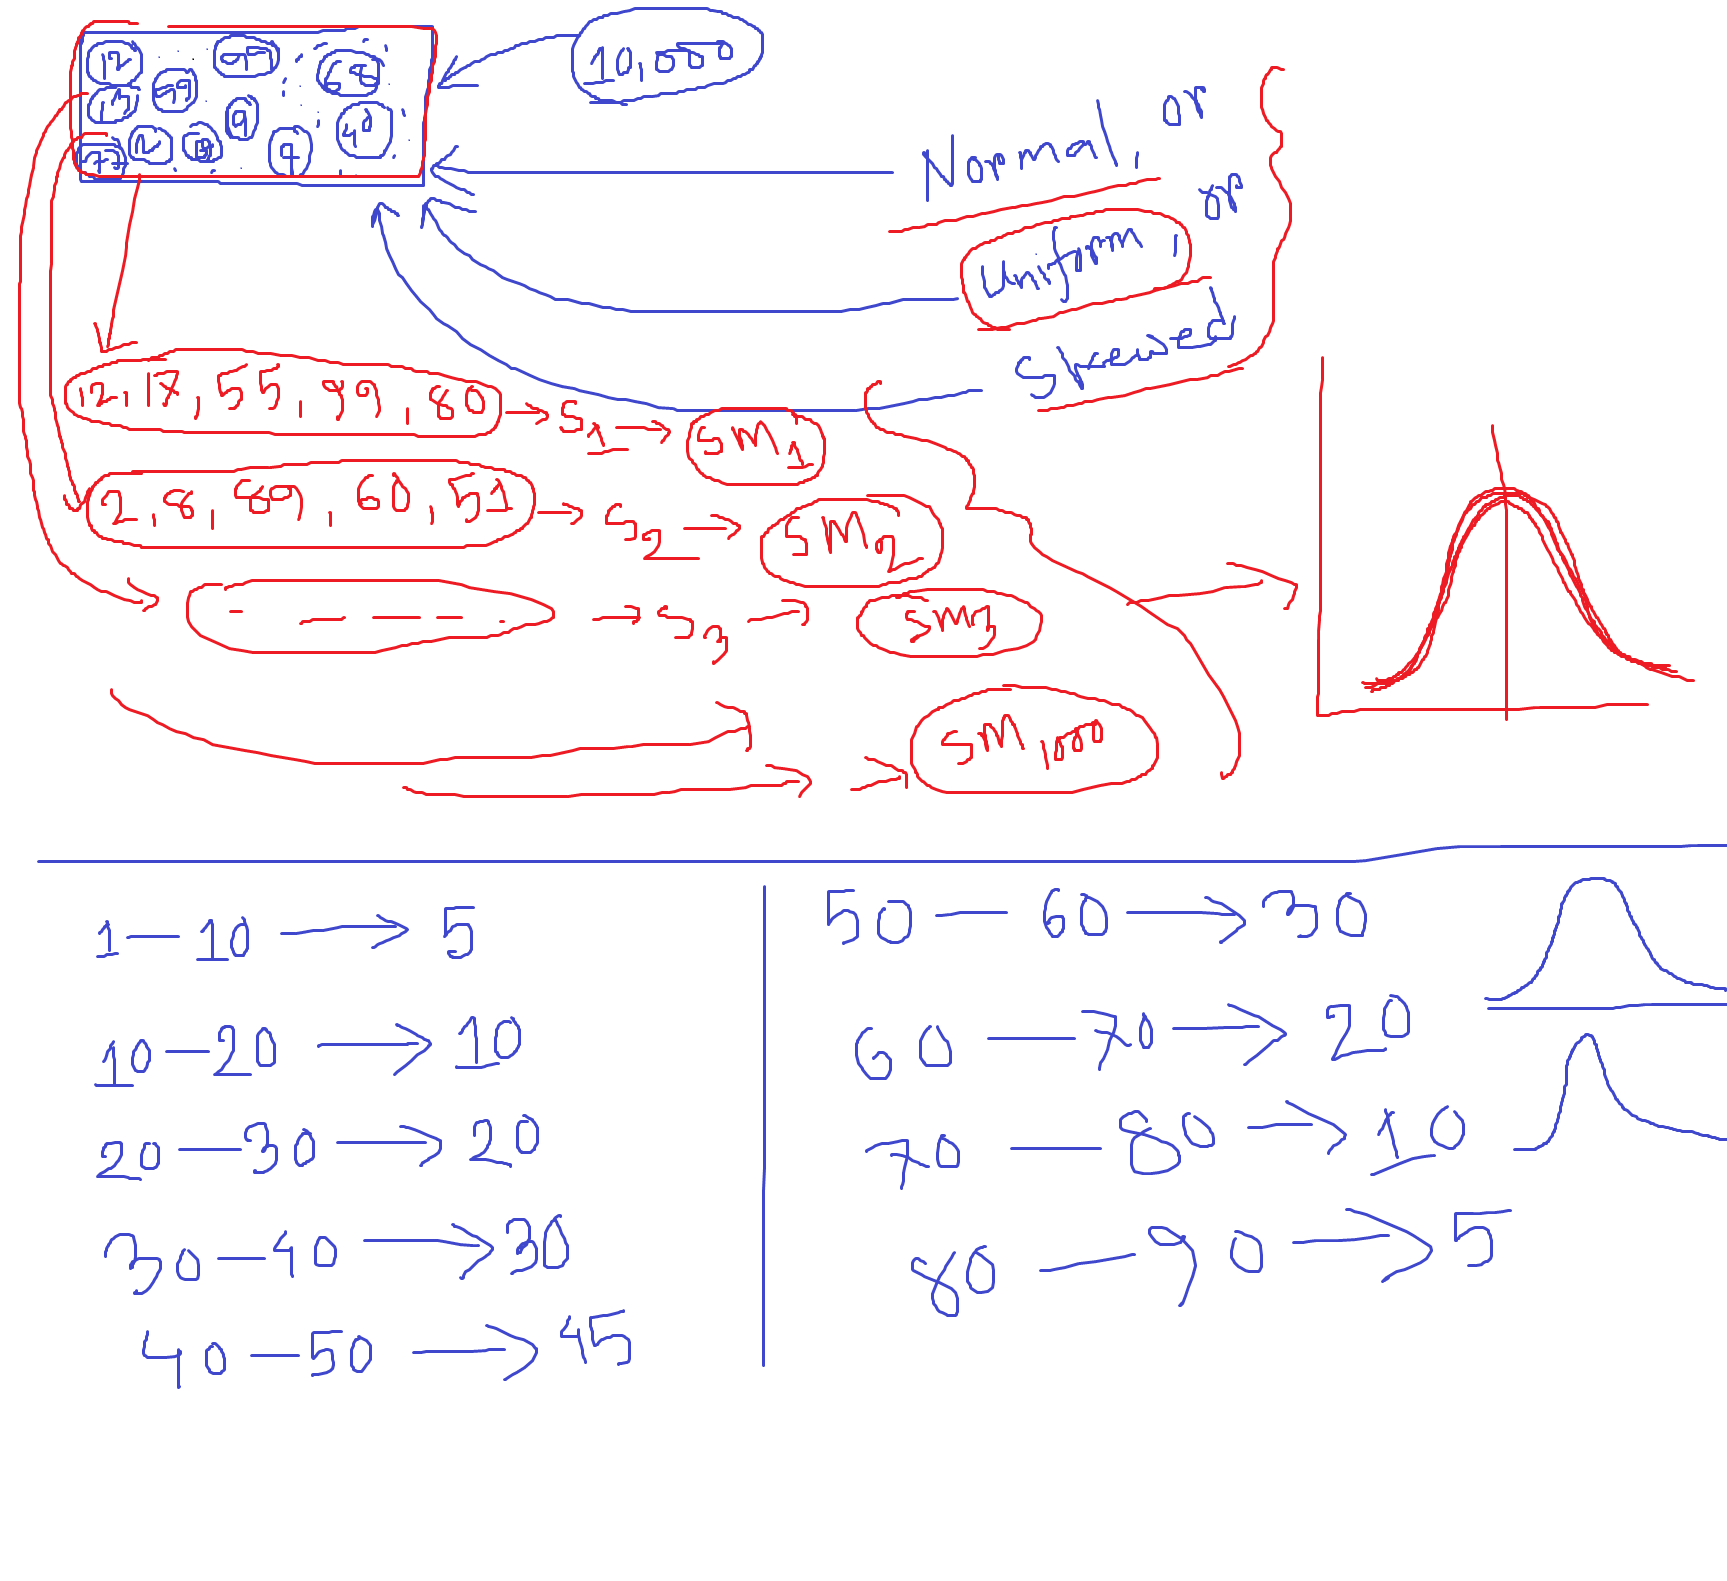 12 99 68
13 49 9 40
77 2 9
10,000
Normal, or
Uniform, or
Skewed
12, 17, 55, 99, 80 → S1 → SM1
2, 8, 89, 60, 51 → S2 → SM2
- — — — . → S3 → SM3
→ SM1000
1 — 10 → 5
10 — 20 → 10
20 — 30 → 20
30 — 40 → 30
40 — 50 → 45
50 — 60 → 30
60 — 70 → 20
70 — 80 → 10
80 — 90 → 5